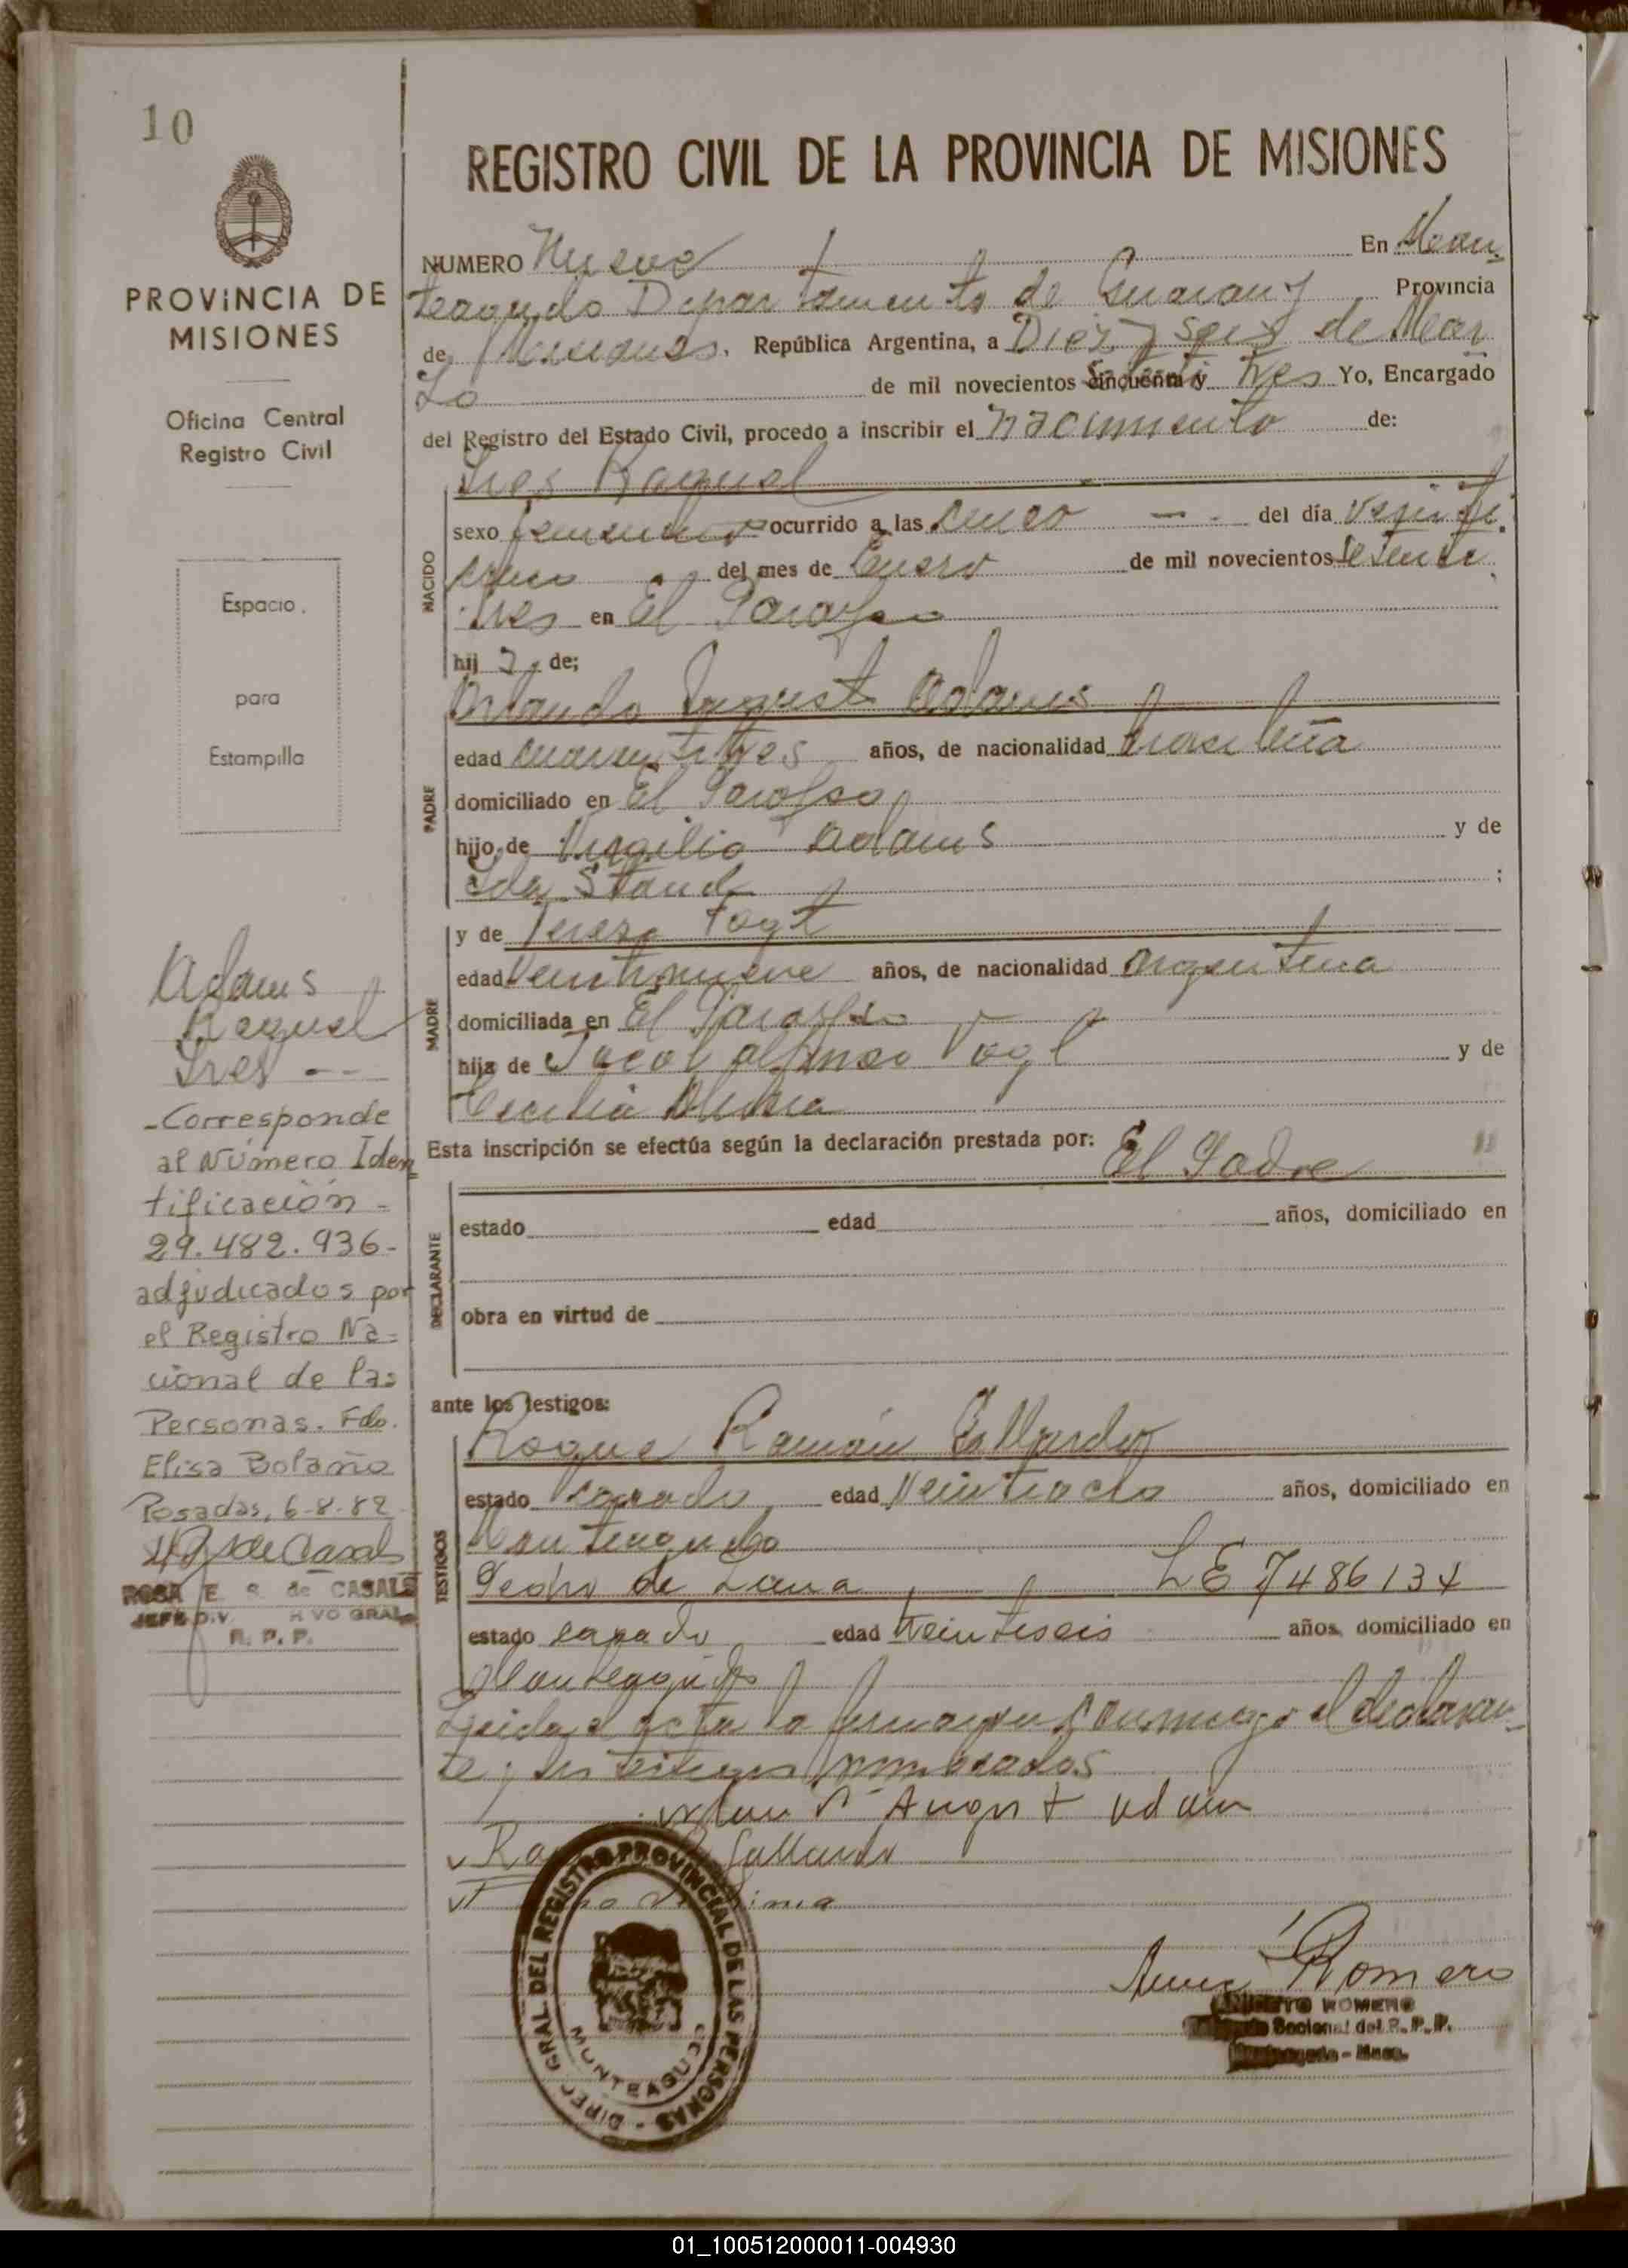 10
PROVINCIA DE
MISIONES
Oficina Central
Registro Civil
Espacio
para
Estampilla
Adams
Raquel
Ires --
-Corresponde
al Número Iden
tificación -
29.482.936-
adjudicados por
el Registro Na-
cional de las
Personas. Fdo.
Elisa Bolaño
Posadas, 6-8-82
de Casals
ROSA E. S. de CASALS
JEFE DIV. GRAL
R. P. P.
REGISTRO CIVIL DE LA PROVINCIA DE MISIONES
NUMERO Nueve En Mon
teagudo Departamento de Guarany Provincia
de Misiones. República Argentina, a Diez y seis de Mar
zo de mil novecientos cincuenta y Setenti tres Yo, Encargado
del Registro del Estado Civil, procedo a inscribir el nacimiento de:
Ires Raquel
NACIDO
sexo femenino ocurrido a las cinco -- del día veinti
cinco del mes de Enero de mil novecientos setenti
tres en El Paraíso
hij a de;
PADRE
Orlando August Adams
edad cuarentitres años, de nacionalidad brasileña
domiciliado en El Paraíso
hijo de Virgilio Adams y de
Ida Staud ;
MADRE
y de Teresa Vogt
edad Veintinueve años, de nacionalidad argentina
domiciliada en El Paraíso
hija de Jacob Alfonso Vogt y de
Cecilia
Esta inscripción se efectúa según la declaración prestada por: El Padre "
DECLARANTE
estado edad años, domiciliado en
obra en virtud de
ante los testigos:
TESTIGOS
Roque Ramón Gallardo
estado casado edad Veintiocho años, domiciliado en
Monteagudo
Pedro de Lima LE 7486134
estado casado edad Veintiseis años, domiciliado en
Monteagudo
Leida el acta la firman conmigo el declaran-
te y los testigos nombrados
August Adam
Gallardo
Lima
DIREC. GRAL DEL REGISTRO PROVINCIAL DE LAS PERSONAS -
MONTEAGUDO
Romero
ROMERO
Seccional del R. P. P.
Monteagudo - Mnes.
01_100512000011-004930